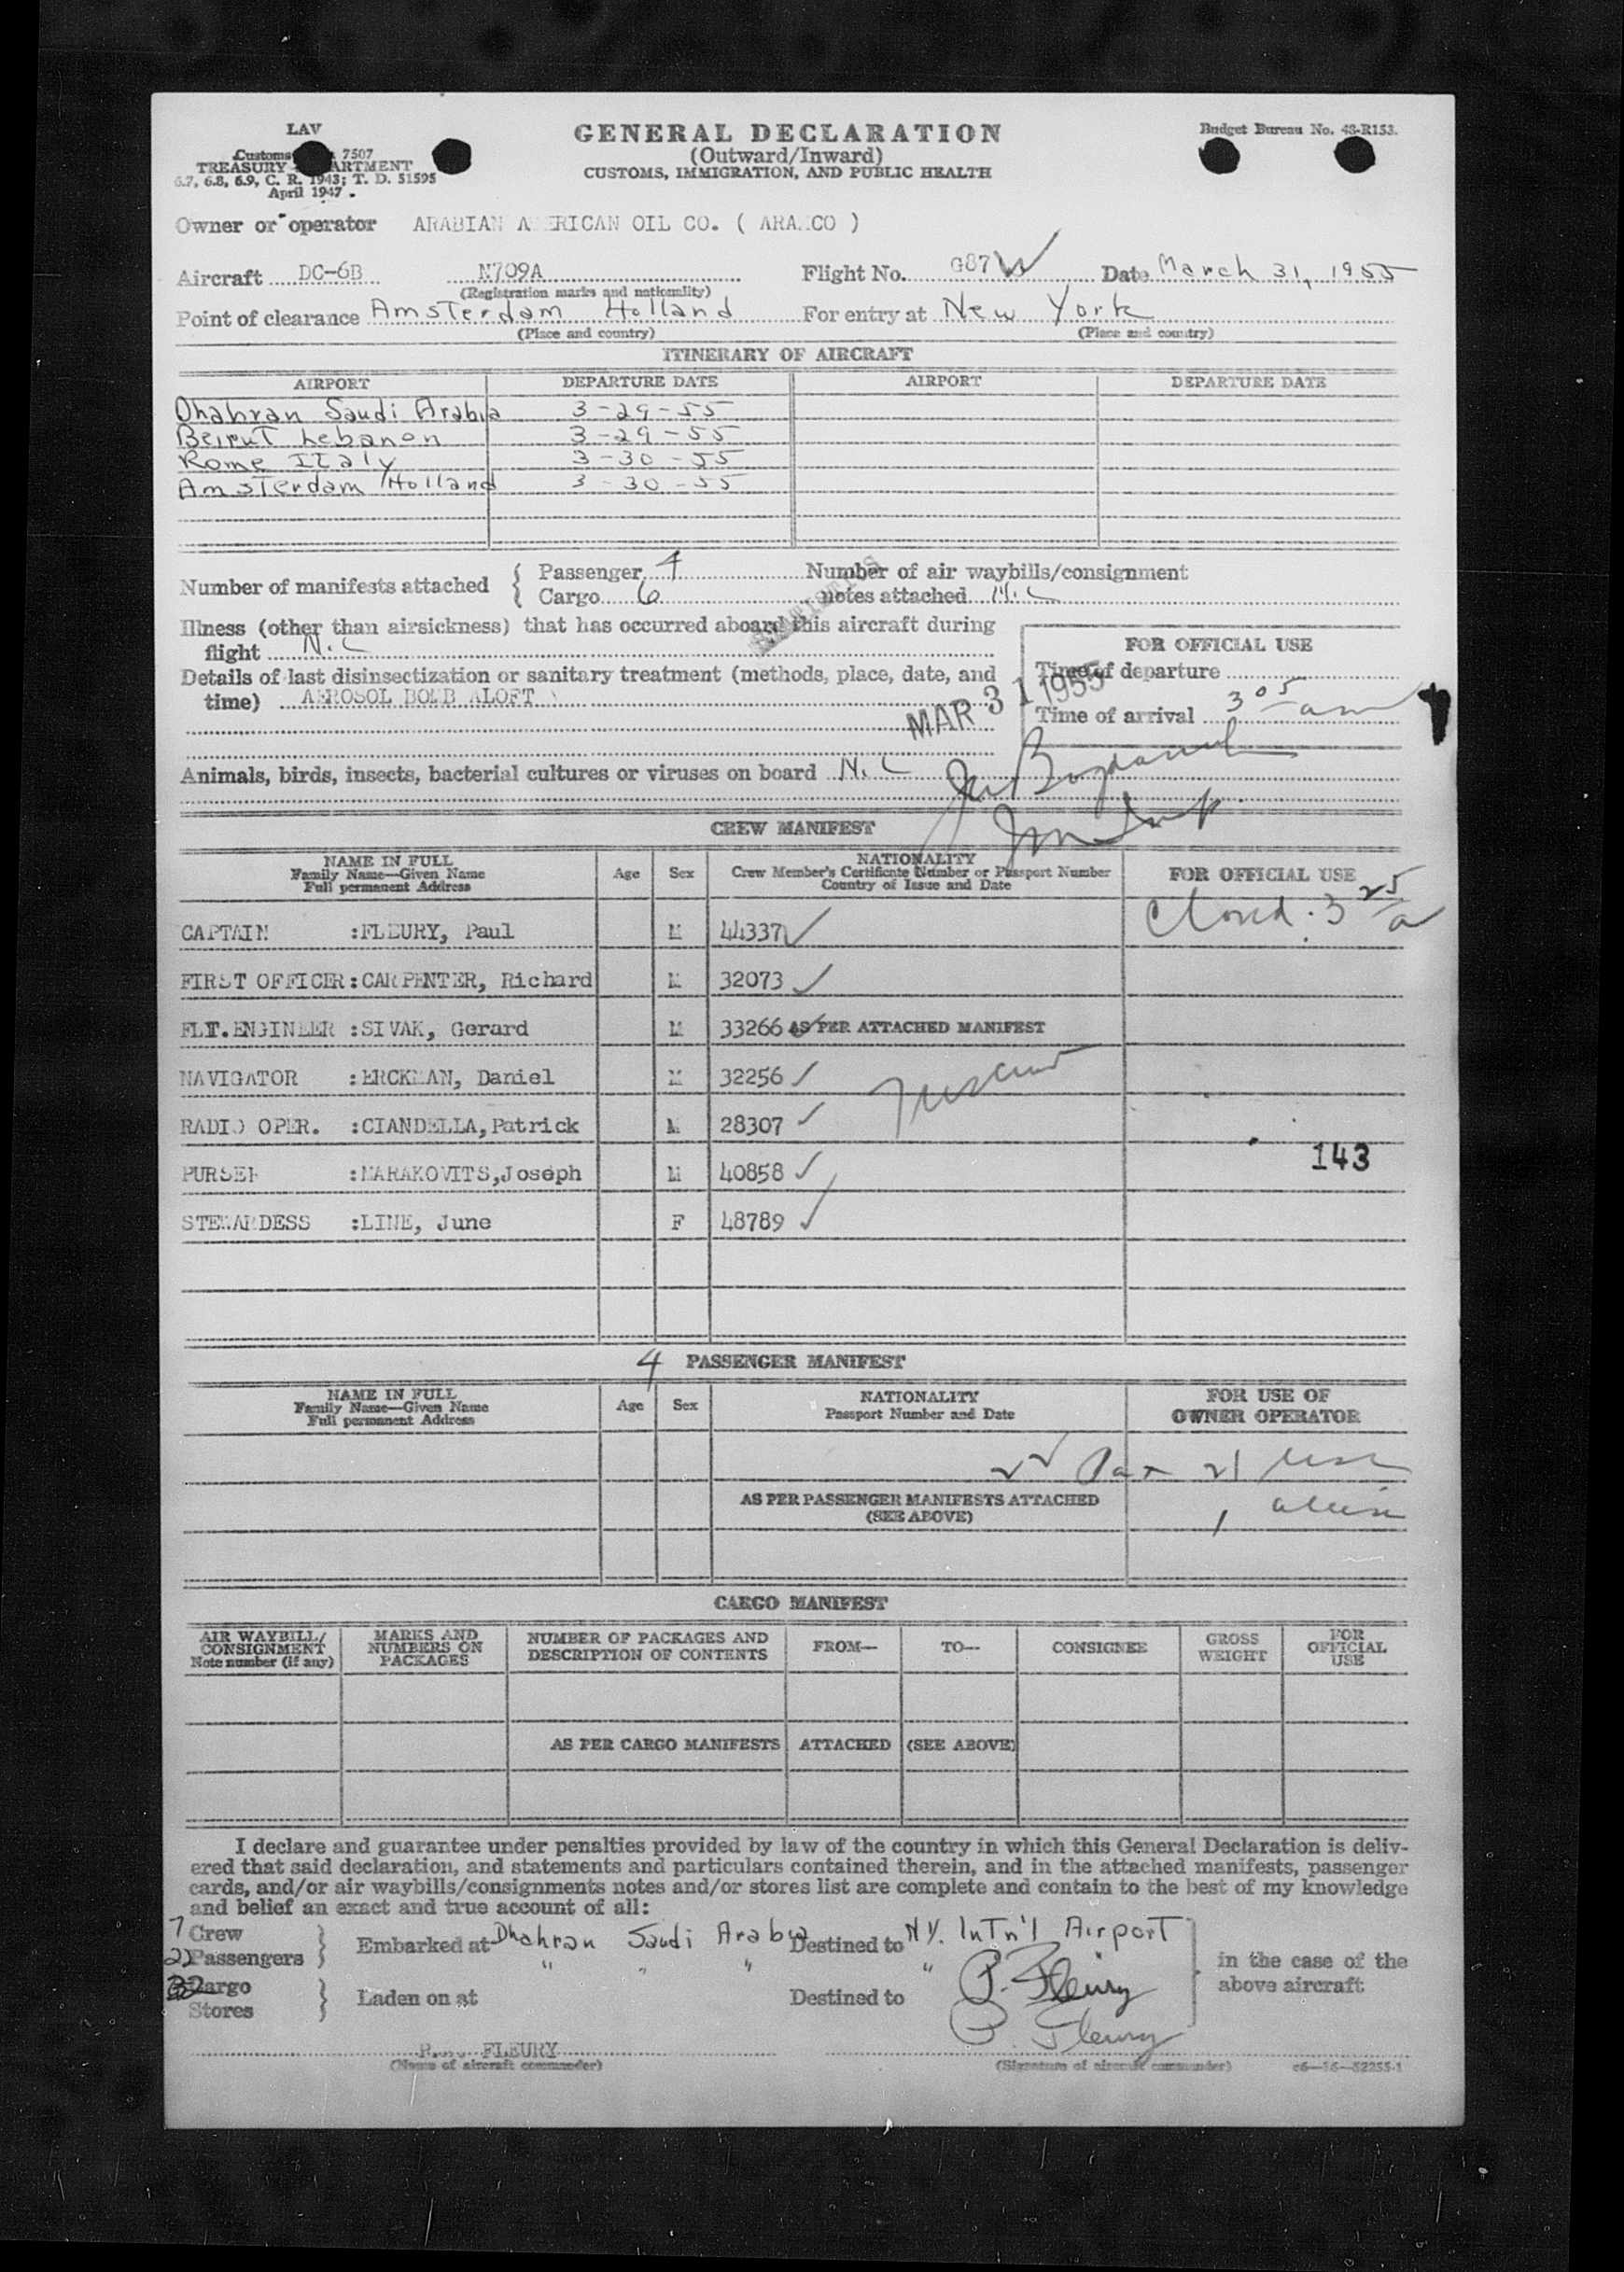 LAV
GENERAL DECLARATION
Budget Bureau No. 43-R153.
Customs 7507
(Outward/Inward)
TREASURY
CUSTOMS, IMMIGRATION, AND PUBLIC HEALTH
6.7, 6.8, 6.9, C. R. 1943; T. D. 51595
April 1947
Owner or operator ARABIAN A ERICAN OIL CO. ( ARA CO )
Aircraft DC-6B N709A Flight No. G87 W Date March 31, 1955
(Registration marks and nationality)
Point of clearance Amsterdam Holland For entry at New York
(Place and country) (Place and country)
ITINERARY OF AIRCRAFT
AIRPORT DEPARTURE DATE AIRPORT DEPARTURE DATE
Dhahran Saudi Arabia 3-29-55
Beirut Lebanon 3-29-55
Rome Italy 3-30-55
Amsterdam Holland 3-30-55
Number of manifests attached { Passenger 4 Number of air waybills/consignment
Cargo 6 notes attached
Illness (other than airsickness) that has occurred aboard this aircraft during
flight
FOR OFFICIAL USE
Details of last disinsectization or sanitary treatment (methods, place, date, and
Time of departure
time) AEROSOL BOMB ALOFT
MAR 31 1955
Time of arrival 3 05 am
Animals, birds, insects, bacterial cultures or viruses on board
CREW MANIFEST
NAME IN FULL
Family Name—Given Name
Full permanent Address
Age Sex
NATIONALITY
Crew Member's Certificate Number or Passport Number
Country of Issue and Date
FOR OFFICIAL USE
Closed. 3 25 a
CAPTAIN :FLEURY, Paul M 44337
FIRST OFFICER:CARPENTER, Richard M 32073
FLT.ENGINEER :SIVAK, Gerard M 33266 AS PER ATTACHED MANIFEST
NAVIGATOR :ERCKMAN, Daniel M 32256
RADIO OPER. :CIANDELLA,Patrick M 28307
143
PURSER :MARAKOVITS,Joseph M 40858
STEWARDESS :LINE, June F 48789
4 PASSENGER MANIFEST
NAME IN FULL
Family Name—Given Name
Full permanent Address
Age Sex
NATIONALITY
Passport Number and Date
FOR USE OF
OWNER OPERATOR
22 Pax 21
AS PER PASSENGER MANIFESTS ATTACHED
(SEE ABOVE)
1 alien
CARGO MANIFEST
AIR WAYBILL/
CONSIGNMENT
Note number (if any)
MARKS AND
NUMBERS ON
PACKAGES
NUMBER OF PACKAGES AND
DESCRIPTION OF CONTENTS
FROM— TO— CONSIGNEE
GROSS
WEIGHT
FOR
OFFICIAL
USE
AS PER CARGO MANIFESTS ATTACHED (SEE ABOVE)
I declare and guarantee under penalties provided by law of the country in which this General Declaration is deliv-
ered that said declaration, and statements and particulars contained therein, and in the attached manifests, passenger
cards, and/or air waybills/consignments notes and/or stores list are complete and contain to the best of my knowledge
and belief an exact and true account of all:
7 Crew
22 Passengers
Embarked at Dhahran Saudi Arabia Destined to N.Y. Int'n'l Airport
" " " "
in the case of the
above aircraft
Cargo
Stores
Laden on at Destined to
P. Fleury
P. Fleury
FLEURY
(Name of aircraft commander) (Signature of aircraft commander) c6—16—52255-1